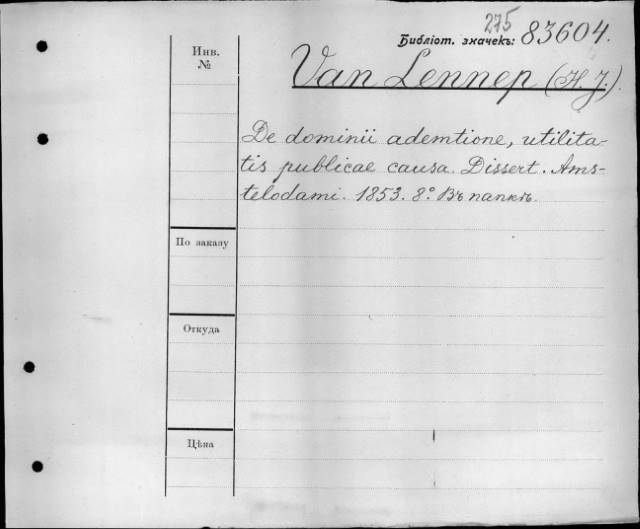 275
Библіот. значекъ: 83604.
Инв.
№
Van Lennep (H. J.).
De dominii ademtione, utilita-
tis publicae causa. Dissert. Ams-
telodami. 1853. 8º. Въ папкѣ.
По заказу
Откуда
Цѣна